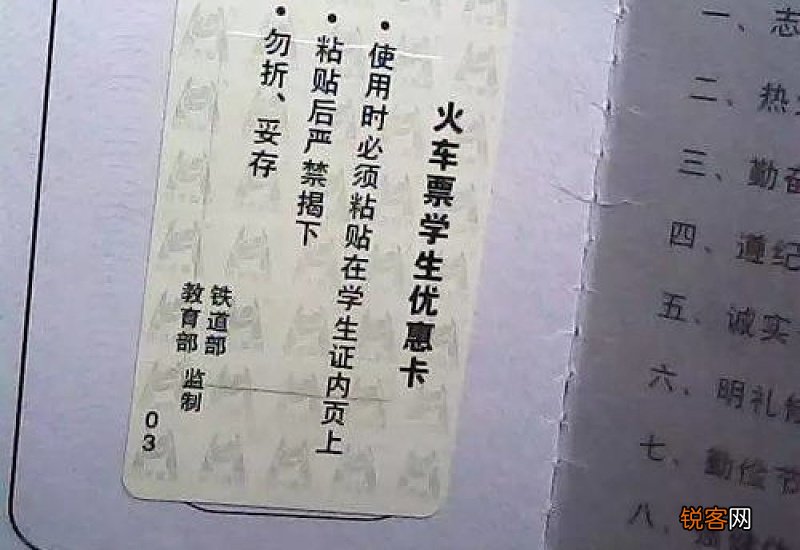 火车票学生优惠卡
• 使用时必须粘贴在学生证内页上
• 粘贴后严禁揭下
• 勿折、妥存
铁道部
教育部 监制
03
一、志
二、热
三、勤奋
四、遵纪
五、诚实
六、明礼
七、勤俭节
八、
锐客网